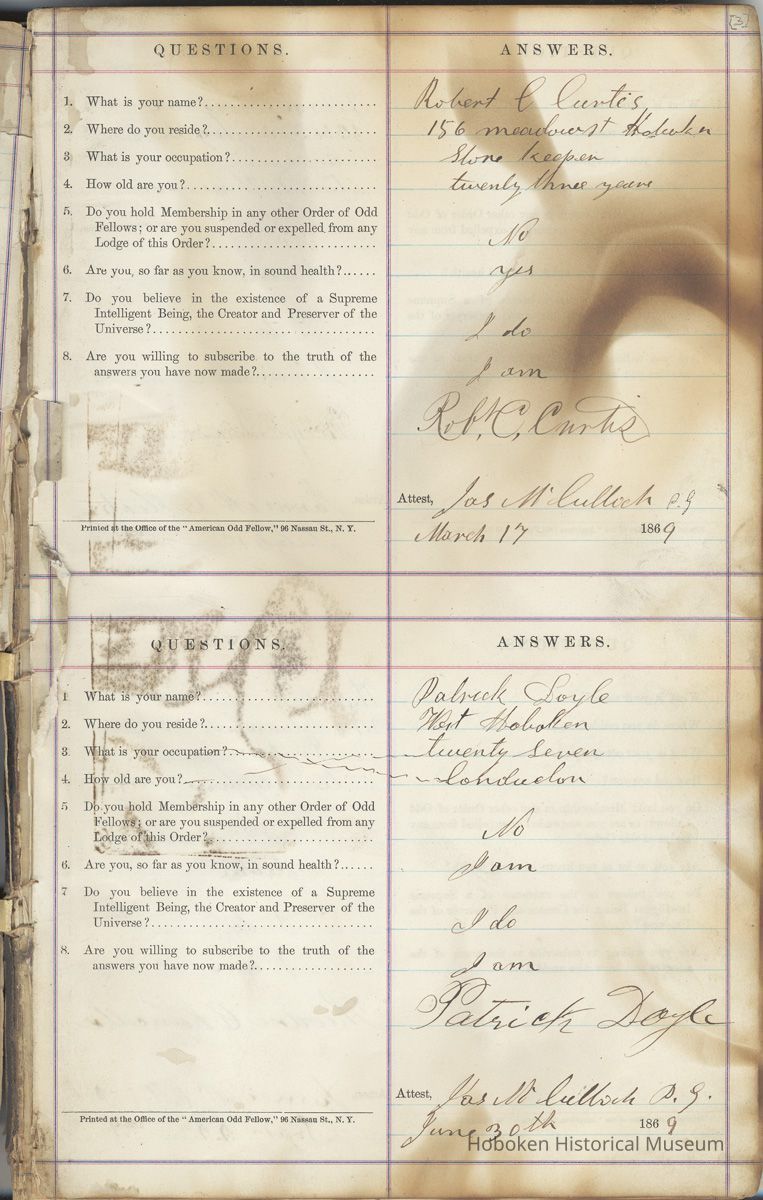 [3]
QUESTIONS. ANSWERS.
1. What is your name?........................... Robert C Curtis
2. Where do you reside?........................... 156 meadow st Hoboken
3 What is your occupation?........................... Store keeper
4. How old are you?........................... twenty three years
5. Do you hold Membership in any other Order of Odd
Fellows; or are you suspended or expelled from any
Lodge of this Order?........................... No
6. Are you, so far as you know, in sound health?...... yes
7. Do you believe in the existence of a Supreme
Intelligent Being, the Creator and Preserver of the
Universe?........................... I do
8. Are you willing to subscribe to the truth of the
answers you have now made?.................... I am
Robt. C, Curtis
Attest, Jas McCulloch P. G
Printed at the Office of the "American Odd Fellow," 96 Nassau St., N. Y.
March 17 1869
QUESTIONS. ANSWERS.
1 What is your name?........................... Patrick Doyle
2. Where do you reside?........................... West Hoboken
3 What is your occupation?........................... twenty seven
4. How old are you?........................... Conductor
5 Do you hold Membership in any other Order of Odd
Fellows; or are you suspended or expelled from any
Lodge of this Order?........................... No
6. Are you, so far as you know, in sound health?...... I am
7 Do you believe in the existence of a Supreme
Intelligent Being, the Creator and Preserver of the
Universe?........................... I do
8. Are you willing to subscribe to the truth of the
answers you have now made?.................... I am
Patrick Doyle
Attest, Jas McCulloch P. G.
Printed at the Office of the "American Odd Fellow," 96 Nassau St., N. Y.
June 30th 1869
Hoboken Historical Museum